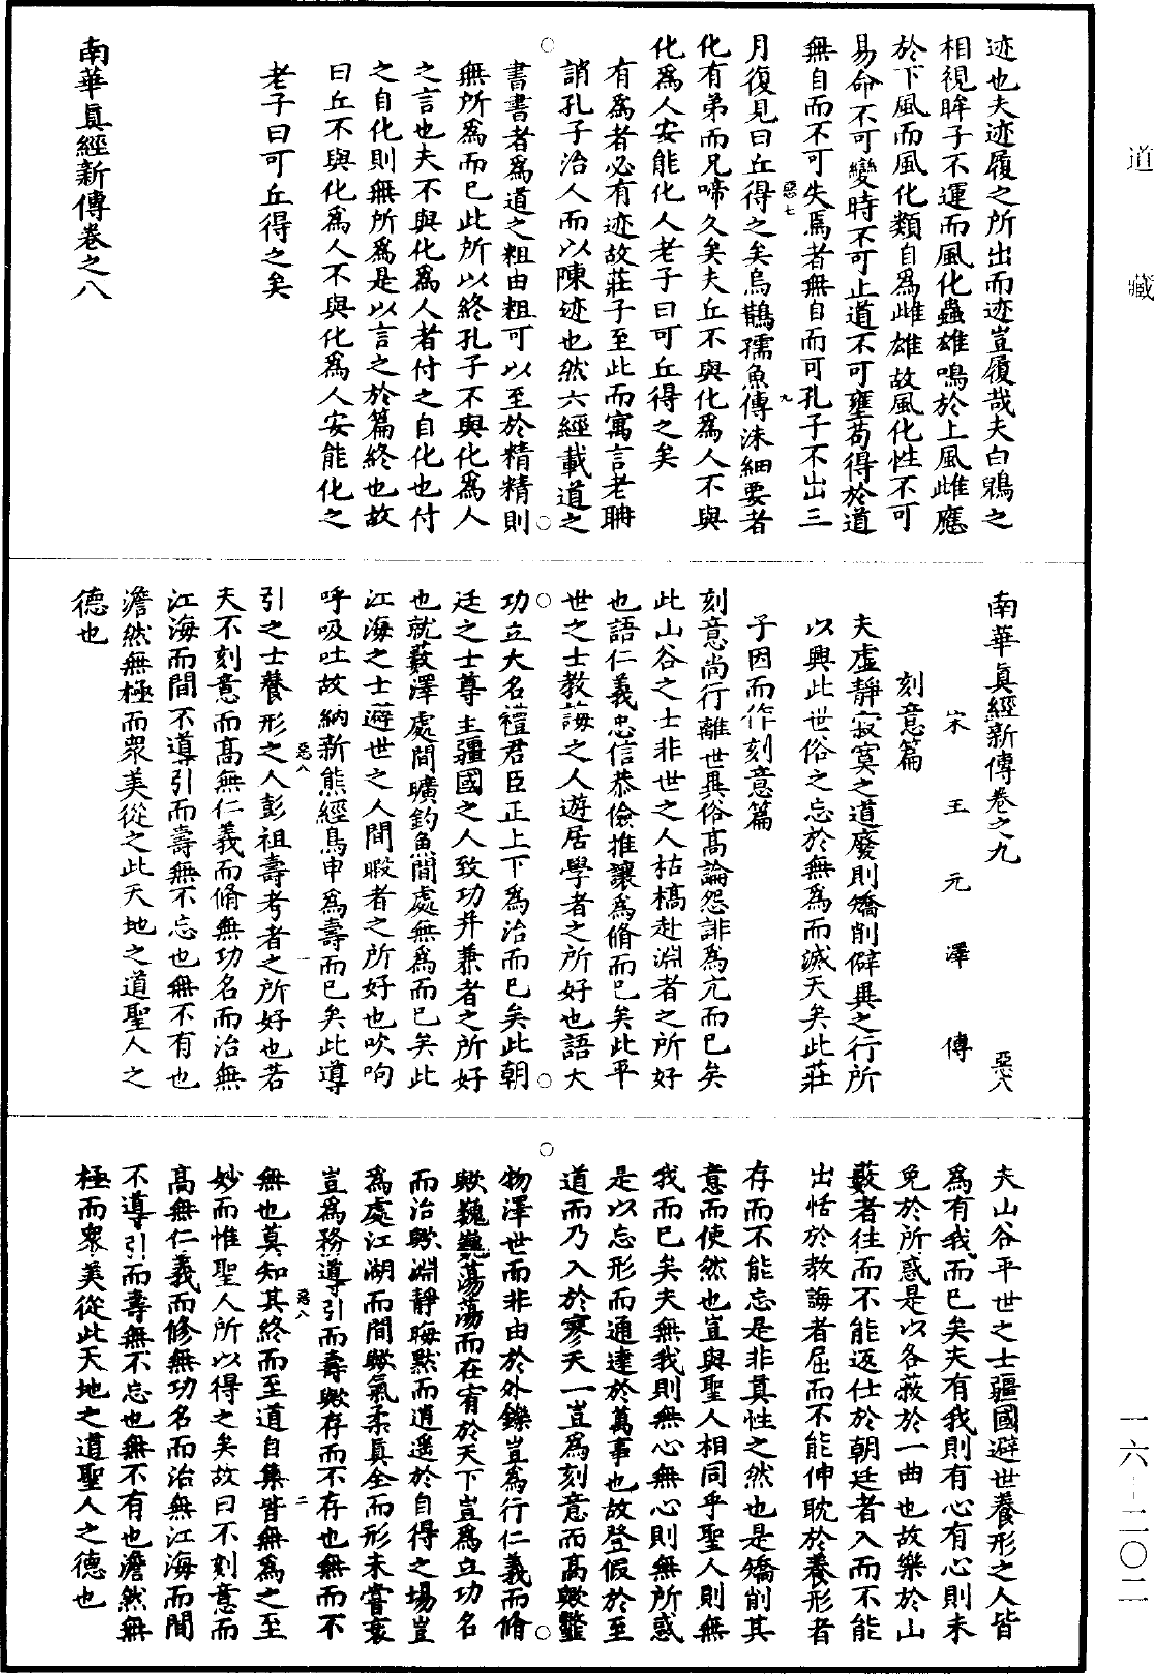 道藏
迹也夫迹履之所出而迹豈履哉夫白鶂之
相視眸子不運而風化蟲雄鳴於上風雌應
於下風而風化類自為雌雄故風化性不可
易命不可變時不可止道不可壅苟得於道
無自而不可失焉者無自而可孔子不出三
月復見曰丘得之矣烏鵲孺魚傳沫細要者
化有弟而兄啼久矣夫丘不與化為人不與
化為人安能化人老子曰可丘得之矣
有為者必有迹故莊子至此而寓言老聃
誚孔子治人而以陳迹也然六經載道之
書書者為道之粗由粗可以至於精精則
無所為而已此所以終孔子不與化為人
之言也夫不與化為人者付之自化也付
之自化則無所為是以言之於篇終也故
曰丘不與化為人不與化為人安能化之
老子曰可丘得之矣
南華真經新傳卷之八
惡七
九
南華真經新傳卷之九
惡八
宋王元澤傳
刻意篇
夫虛靜寂寞之道廢則矯削僻異之行所
以興此世俗之忘於無為而滅天矣此莊
子因而作刻意篇
刻意尚行離世異俗高論怨誹為亢而已矣
此山谷之士非世之人枯槁赴淵者之所好
也語仁義忠信恭儉推讓為脩而已矣此平
世之士教誨之人遊居學者之所好也語大
功立大名禮君臣正上下為治而已矣此朝
廷之士尊主疆國之人致功并兼者之所好
也就藪澤處間曠釣魚間處無為而已矣此
江海之士避世之人間暇者之所好也吹呴
呼吸吐故納新熊經鳥申為壽而已矣此導
惡八
一
引之士養形之人彭祖壽考者之所好也若
夫不刻意而高無仁義而脩無功名而治無
江海而間不導引而壽無不忘也無不有也
澹然無極而衆美從之此天地之道聖人之
德也
夫山谷平世之士疆國避世養形之人皆
為有我而已矣夫有我則有心有心則未
免於所惑是以各蔽於一曲也故樂於山
藪者往而不能返仕於朝廷者入而不能
出恬於教誨者屈而不能伸耽於養形者
存而不能忘是非其性之然也是矯削其
意而使然也豈與聖人相同乎聖人則無
我而已矣夫無我則無心無心則無所惑
是以忘形而通達於萬事也故登假於至
道而乃入於寥天一豈為刻意而高歟䪠
物澤世而非由於外鑠豈為行仁義而脩
歟巍巍蕩蕩而在宥於天下豈為立功名
而治歟淵靜晦默而逍遙於自得之場豈
為處江湖而間歟氣柔真全而形未嘗衰
豈為務導引而壽歟存而不存也無而不
惡八
二
無也莫知其終而至道自集皆無為之至
妙而惟聖人所以得之矣故曰不刻意而
高無仁義而修無功名而治無江海而間
不導引而壽無不忘也無不有也澹然無
極而衆美從此天地之道聖人之德也
一六-二〇二